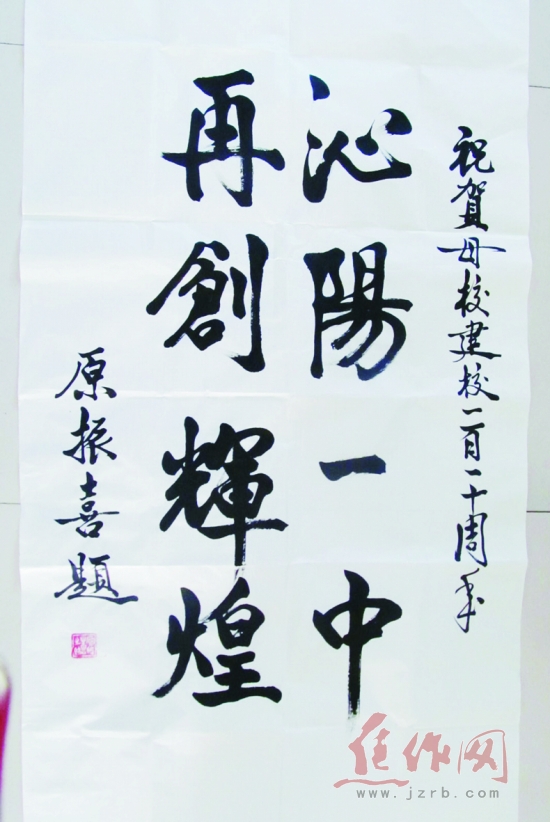 祝賀母校建校一百一十周年
沁陽一中
再創輝煌
原振喜題
焦作网
www.jzrb.com